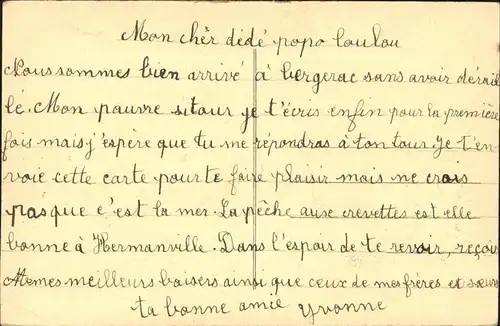 Mon chèr dédé popo loulou
Nous sommes bien arrivé à bergerac sans avoir dérail
lé. Mon pauvre sitour je t'écris enfin pour la première
fois mais j'espère que tu me répondras à ton tour. Je t'en-
voie cette carte pour te faire plaisir mais ne crois
pas que c'est la mer. La pêche aux crevettes est elle
bonne à Hermanville. Dans l'espoir de te revoir, reçois
Mes meilleurs baisers ainsi que ceux de mes frères et sœurs
ta bonne amie Yvonne